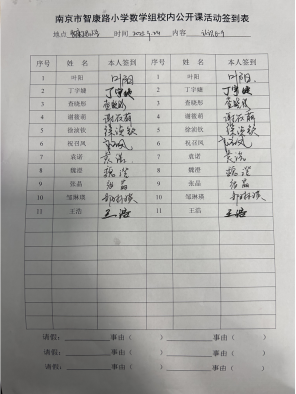 南京市智康路小学数学组校内公开课活动签到表
地点 时间 内容
序号 姓 名 本人签到 序号 姓 名 本人签到
1 叶阳 叶阳 1 叶阳 叶阳
2 丁宇婕 丁宇婕 2 丁宇婕 丁宇婕
3 查晓彤 查晓彤 3 查晓彤 查晓彤
4 谢筱萌 谢筱萌 4 谢筱萌 谢筱萌
5 徐浓钦 徐浓钦 5 徐浓钦 徐浓钦
6 祝召凤 6 祝召凤
7 袁诺 袁诺 7 袁诺 袁诺
8 魏澄 魏澄 8 魏澄 魏澄
9 张晶 张晶 9 张晶 张晶
10 邹琳瑛 邹琳瑛 10 邹琳瑛 邹琳瑛
11 王浩 王浩 11 王浩 王浩
请假： 事由（ ） 事由（ ）
请假： 事由（ ） 事由（ ）
请假： 事由（ ） 事由（ ）